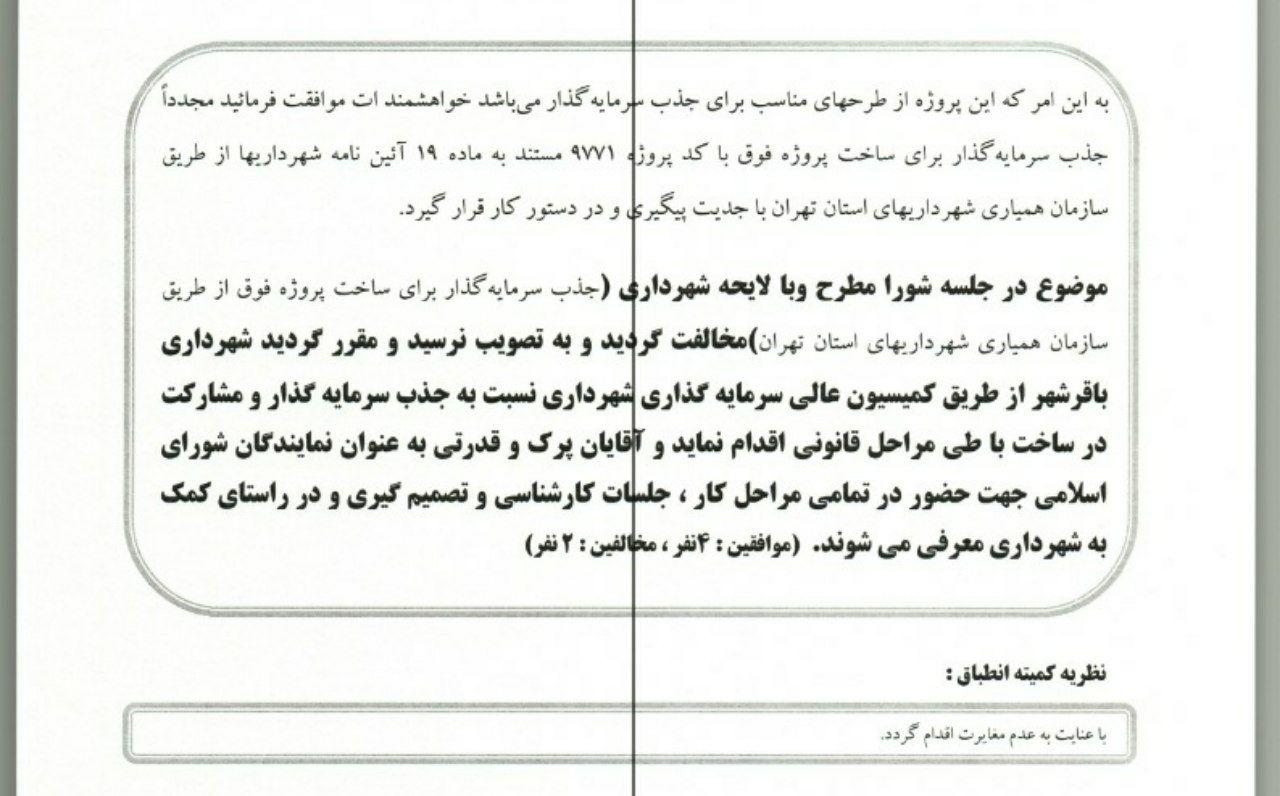 به این امر که این پروژه از طرحهای مناسب برای جذب سرمایه‌گذار می‌باشد خواهشمند ات موافقت فرمائید مجدداً
جذب سرمایه‌گذار برای ساخت پروژه فوق با کد پروژه ۹۷۷۱ مستند به ماده ۱۹ آئین نامه شهرداریها از طریق
سازمان همیاری شهرداریهای استان تهران با جدیت پیگیری و در دستور کار قرار گیرد.
موضوع در جلسه شورا مطرح وبا لایحه شهرداری (جذب سرمایه‌گذار برای ساخت پروژه فوق از طریق
سازمان همیاری شهرداریهای استان تهران)مخالفت گردید و به تصویب نرسید و مقرر گردید شهرداری
باقرشهر از طریق کمیسیون عالی سرمایه گذاری شهرداری نسبت به جذب سرمایه گذار و مشارکت
در ساخت با طی مراحل قانونی اقدام نماید و آقایان پرک و قدرتی به عنوان نمایندگان شورای
اسلامی جهت حضور در تمامی مراحل کار ، جلسات کارشناسی و تصمیم گیری و در راستای کمک
به شهرداری معرفی می شوند. (موافقین : ۴نفر ، مخالفین : ۲ نفر)
نظریه کمیته انطباق :
با عنایت به عدم مغایرت اقدام گردد.